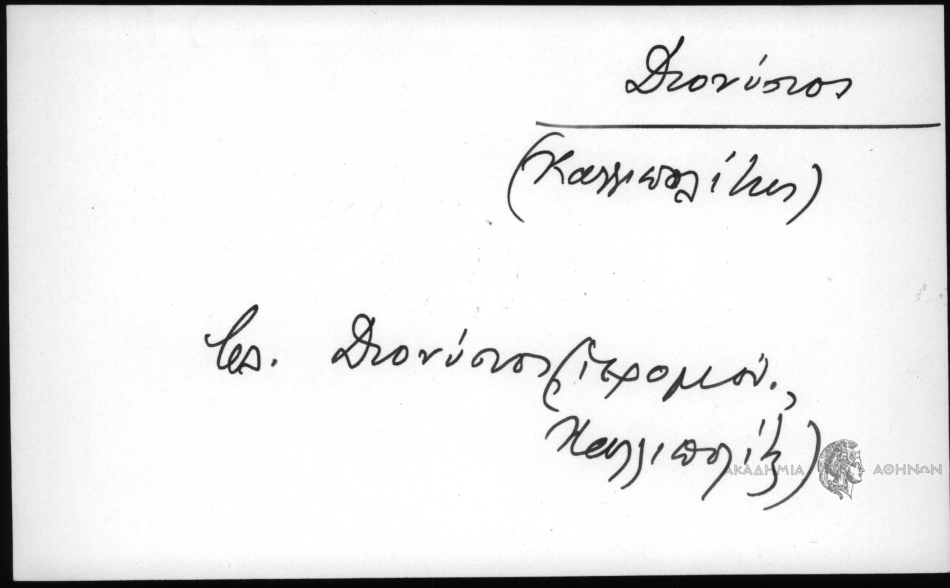 Διονύσιος
(Καλλιπολίτης)
βλ. Διονύσιος (ἱερομόν.,
Καλλιπολίτ)
ΑΚΑΔΗΜΙΑ ΑΘΗΝΩΝ